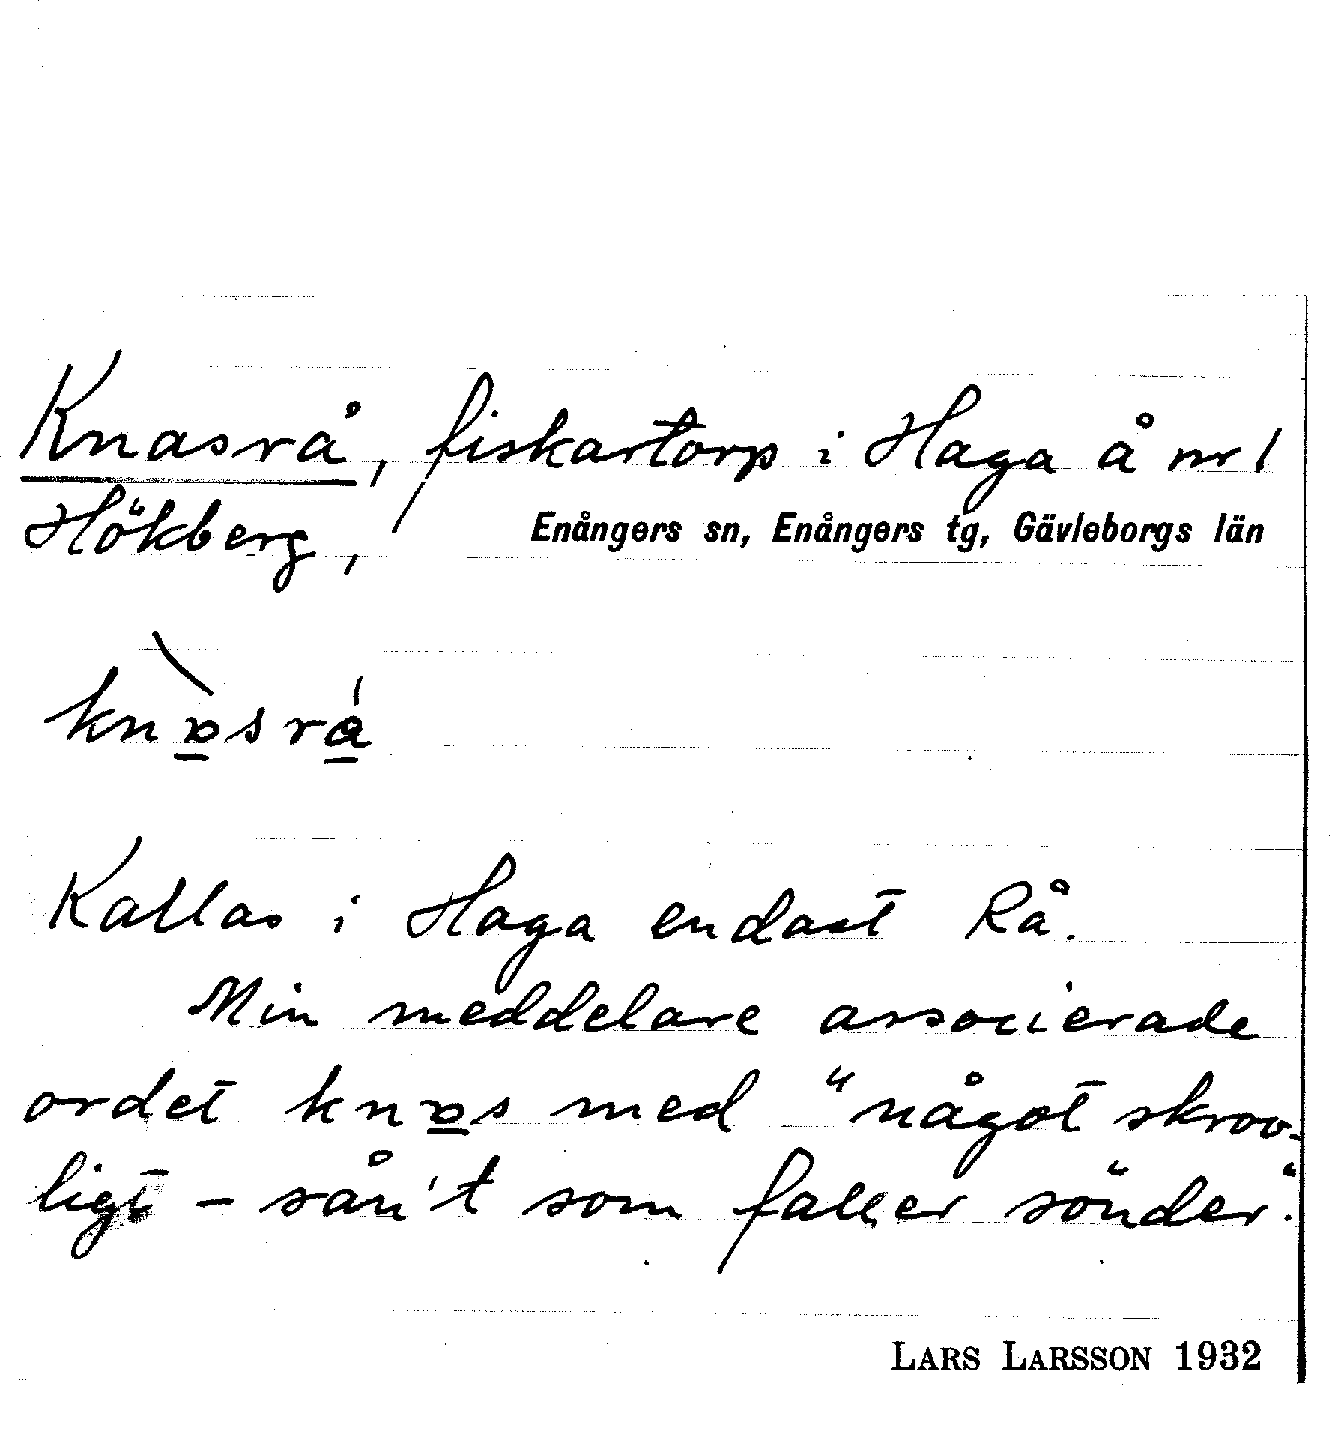 Knasrå, fiskartorp i Haga å nr 1
Hökberg, Enångers sn, Enångers tg, Gävleborgs län
Kallas i Haga endast Rå.
Min meddelare associerade
ordet knɒs med "något skrov-
ligt – sån't som faller sönder."
LARS LARSSON 1932